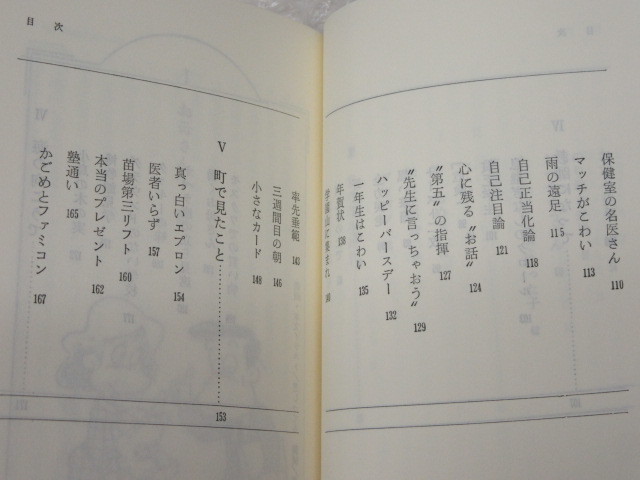 保健室の名医さん 110
マッチがこわい 113
雨の遠足 115
自己正当化論 118
自己注目論 121
心に残る〝お話〟 124
〝第五〟の指揮 127
〝先生に言っちゃおう〟 129
ハッピーバースデー 132
一年生はこわい 135
年賀状 138
目次
率先垂範 143
三週間目の朝 146
小さなカード 148
Ⅴ 町で見たこと 153
真っ白いエプロン 154
医者いらず 157
苗場第三リフト 160
本当のプレゼント 162
塾通い 165
かごめとファミコン 167